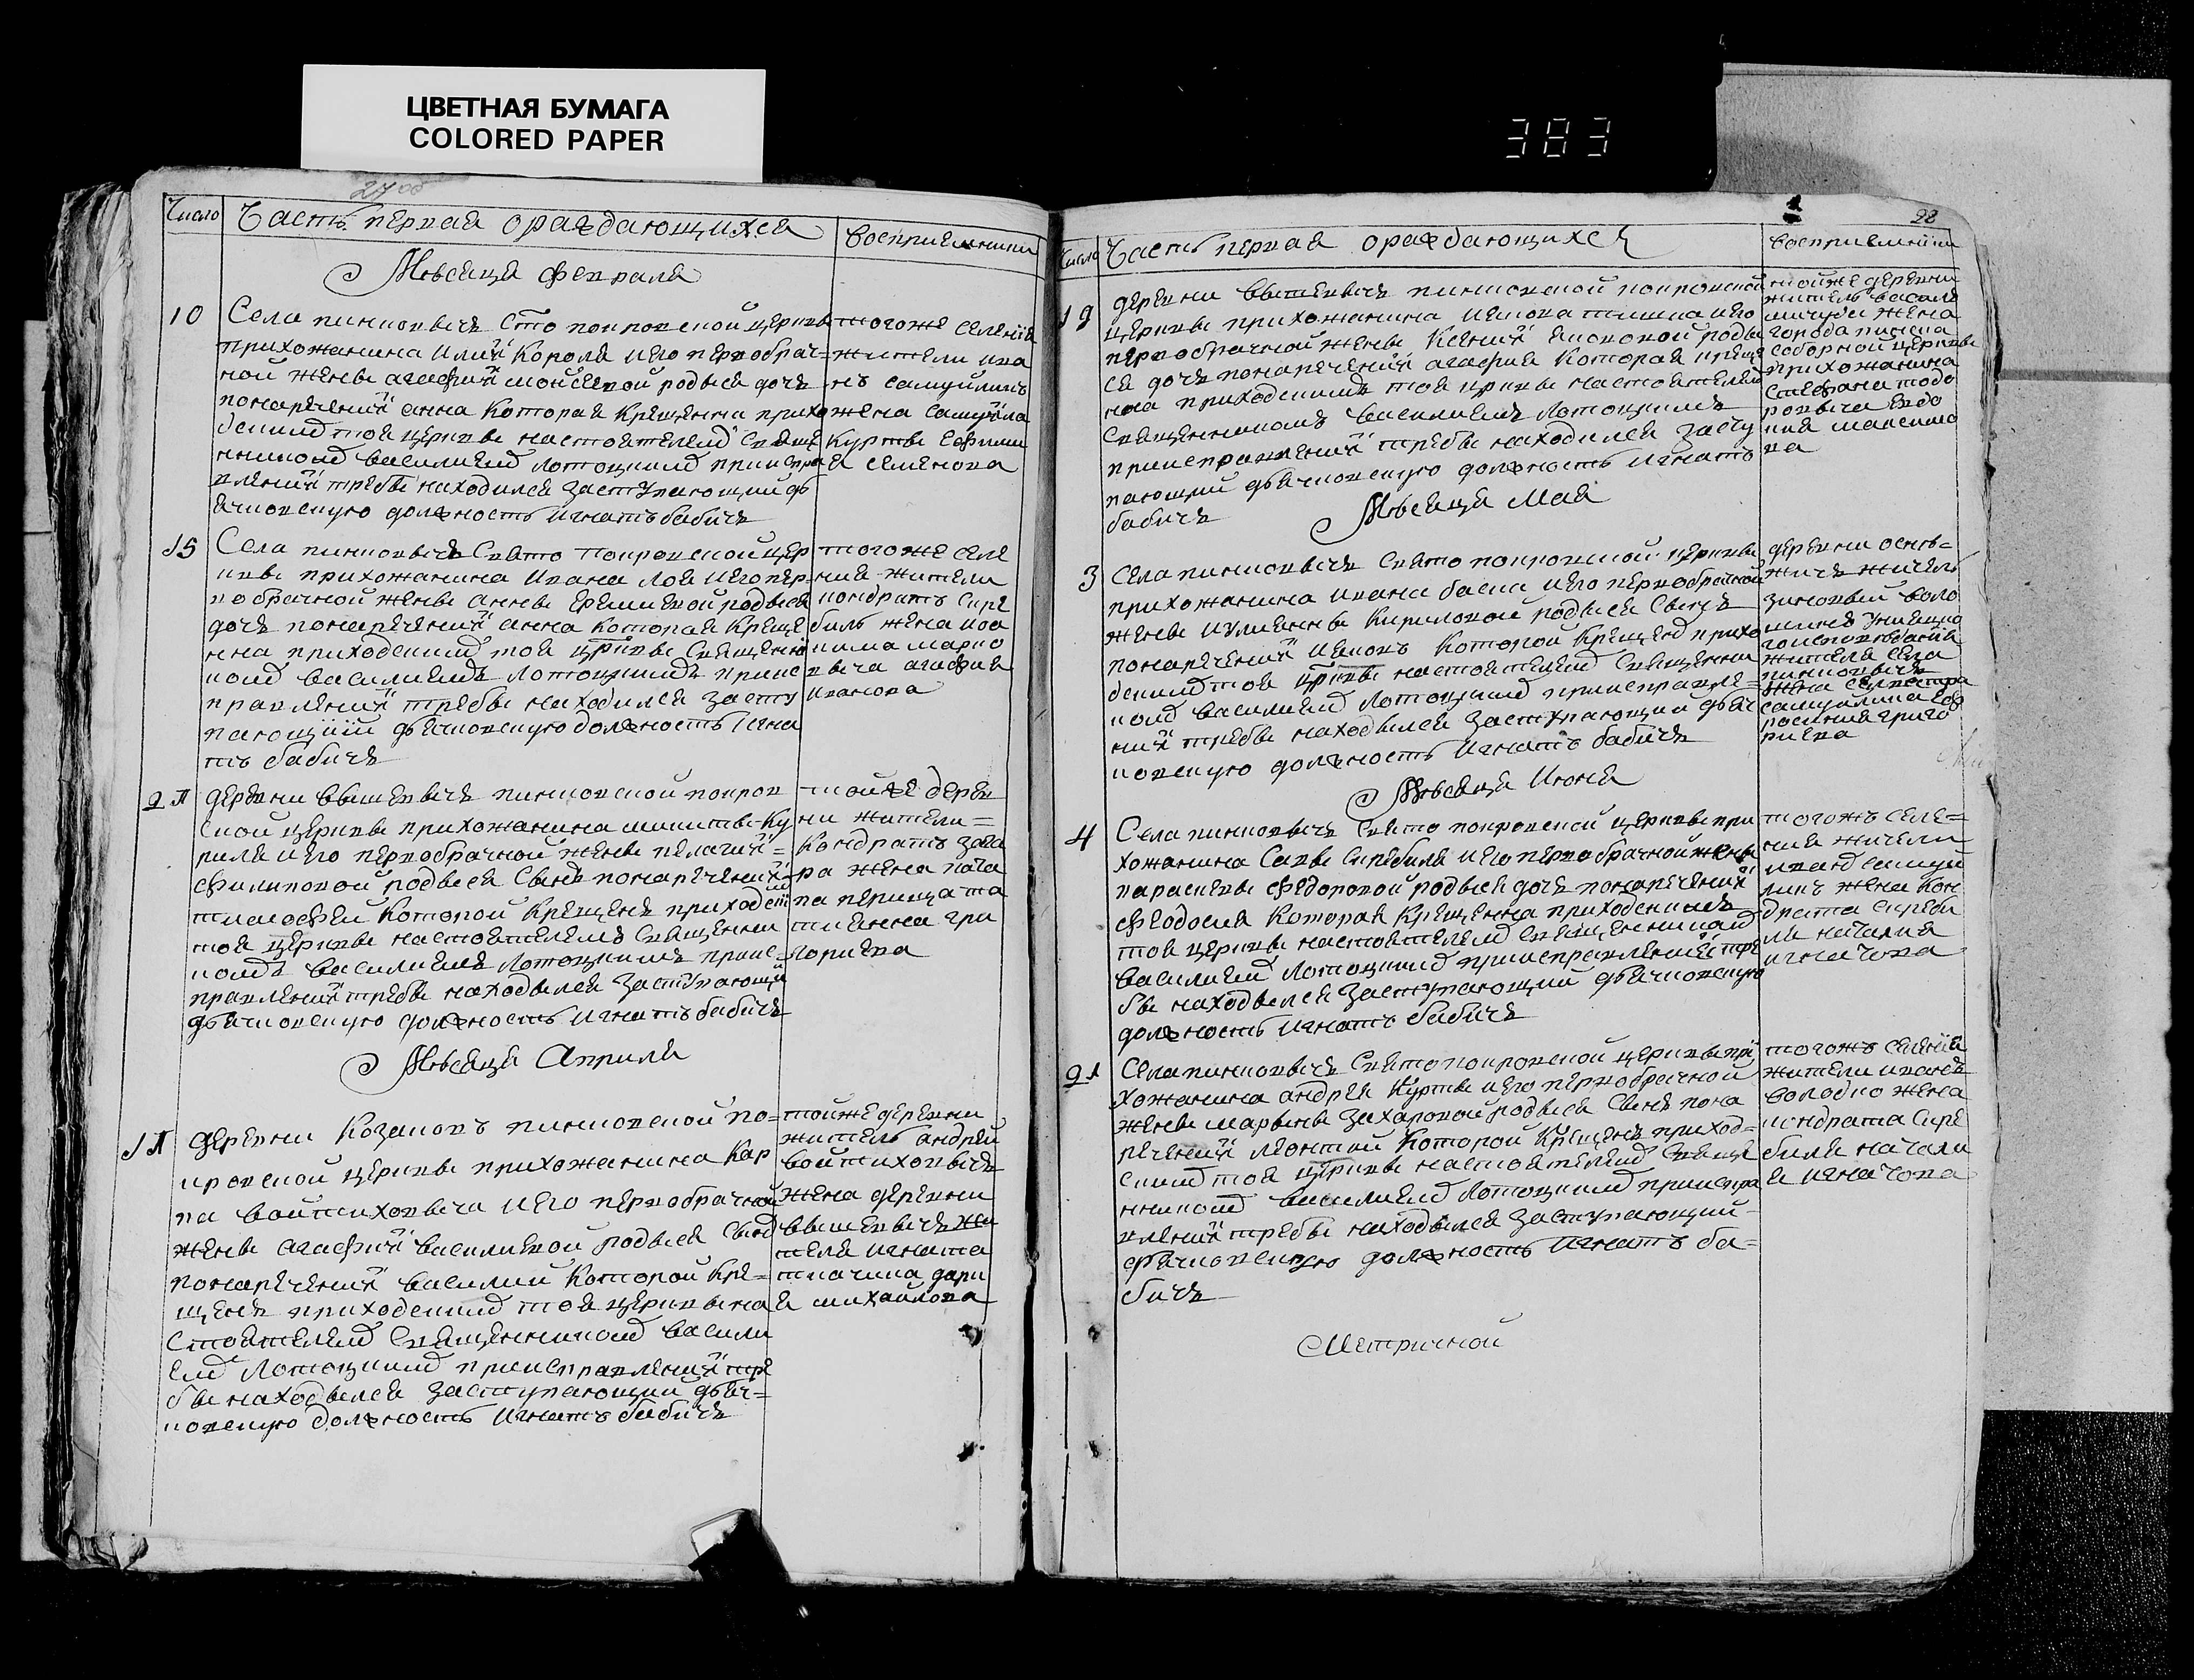 ЦВЕТНАЯ БУМАГА
COLORED PAPER
383
27 об
Число
Часть первая ораждающихся
Восприемники
Месяца февраля
10
Села пинковичъ Сто покровской церкве
прихожанина Илїи Короля и его первобрач=
ной жене агафїи мойсеевой родися дочь
понаречений анна Которая Крещенна прихо
дскимъ тоя церкве настоятелемъ Свяще
нникомъ Василиемъ Лотоцкимъ прииспра
влений требы находился заступающий дь
ячковскую должность Игнатъ бабичъ
тогоже селения
жители ива
нъ самуйликъ
жена самуйла
Курты ефими
я семенова
15
Села пинковичъ Свято Покровской цер
кве прихожанина Ивана Лоя и его пер
вобрачной жене Анне Еремиевой родися
дочь понаречений анна Которая Креще
нна приходскимъ тоя церкве Священни
комъ Василиемъ Лотоцкимъ приис
правлений требы находился засту
пающий дьячковскую должность Игна
тъ бабичъ
тогоже селе
ния жители
кондратъ Скре
биль жена иоа
кима марко
вича агафия
Иванова
2Л
деревни вышевичъ пинковской покров
ской церкве прихожанина микиты Ку
риля и его первобрачной жене пелагии
филиповой родися Сынъ понаречений
тимофей Которой Крещенъ приходскимъ
тоя церкве настоятелемъ Священни
комъ Василиемъ Лотоцкимъ приис
правлений требы находылся заступающий
дьячковскую должность Игнатъ бабичъ
тойже дерев
ни жители=
Кондратъ
жена
та
тиянна гри
гориева
Месяца Априля
1Л
деревни Козаковъ пинковской по=
кровской церкве прихожанина Кар
па войтиховича и его первобрачной
жене агафїи Василиевой родися Сынъ
понаречений василий Которой Кре=
щенъ приходскимъ тоя церкви на
стоятелемъ Священникомъ васили
емъ Лотоцкимъ приисправлений тре
бы находылся заступающий дьяч=
ковскую должность Игнатъ бабичъ
тойже деревни
житель андрей
войтиховичъ
жена деревни
вышевичъ жи
теля игната
ткачика дари
я михайлова
28
Число
Часть первая ораждающихся
Восприемники
19
деревни вышевичъ пинковской покровской
церкве прихожанина Иакова и его
первобрачной жене Ксении роды
ся дочь понаречений агафия Которая креще
нна приходскимъ тоя церкве настоятелемъ
Священникомъ Василиемъ Лотоцкимъ
приисправлений требы находился засту
пающий дьячковскую должность Игнатъ
бабичъ
тойже деревни
житель
жена
города пинска
соборной церкве
прихожанина
Стефана тодо
ровича евдо
кия максимо
ва
Месяца Мая
3
Села пинковичъ Свято покровской церкве
прихожанина ивана и его первобрачной
жене иулиянне Кириловой родися Сынъ
понаречений иаковъ Которой Крещенъ прихо
дскимъ тоя церкве настоятелемъ Священни
комъ Василиемъ Лотоцкимъ приисправле=
ний требы находылся заступающий дьяч
ковскую должность Игнатъ бабичъ
деревни
житель
зиновий воло
житель села
пинковичъ
жена
самуйлика евф
росиния григо
риева
Месяца Июня
4
Села пинковичъ Свято покровской церкве при
хожанина Савы Скребиля и его первобрачной жены
параскеве Федоровой родися дочь понаречений
Феодосия Которая Крещенна приходскимъ
тоя церкве настоятелемъ Священникомъ
Василиемъ Лотоцкимъ приисправлений тре
бы находылся заступающий дьячковскую
должность Игнатъ бабичъ
тогожъ селе=
ния жители
иванъ самуй
ликъ жена Кон
драта Скреби
ля наталия
игнатова
21
Села пинковичъ Святопокровской церкве при
хожанина андрея Курты и его первобрачной
жене марьяне захаровой родися Сынъ пона
речений леонтий Которой Крещенъ приход=
скимъ тоя церкве настоятелемъ Свяще
нникомъ Василиемъ Лотоцкимъ приисправ
влений требы находылся заступающий
дьячковскую должность Игнатъ ба=
бичъ
тогожъ селения
жители иванъ
володко жена
кондрата Скре
биля натали
я игнатова
Метричной